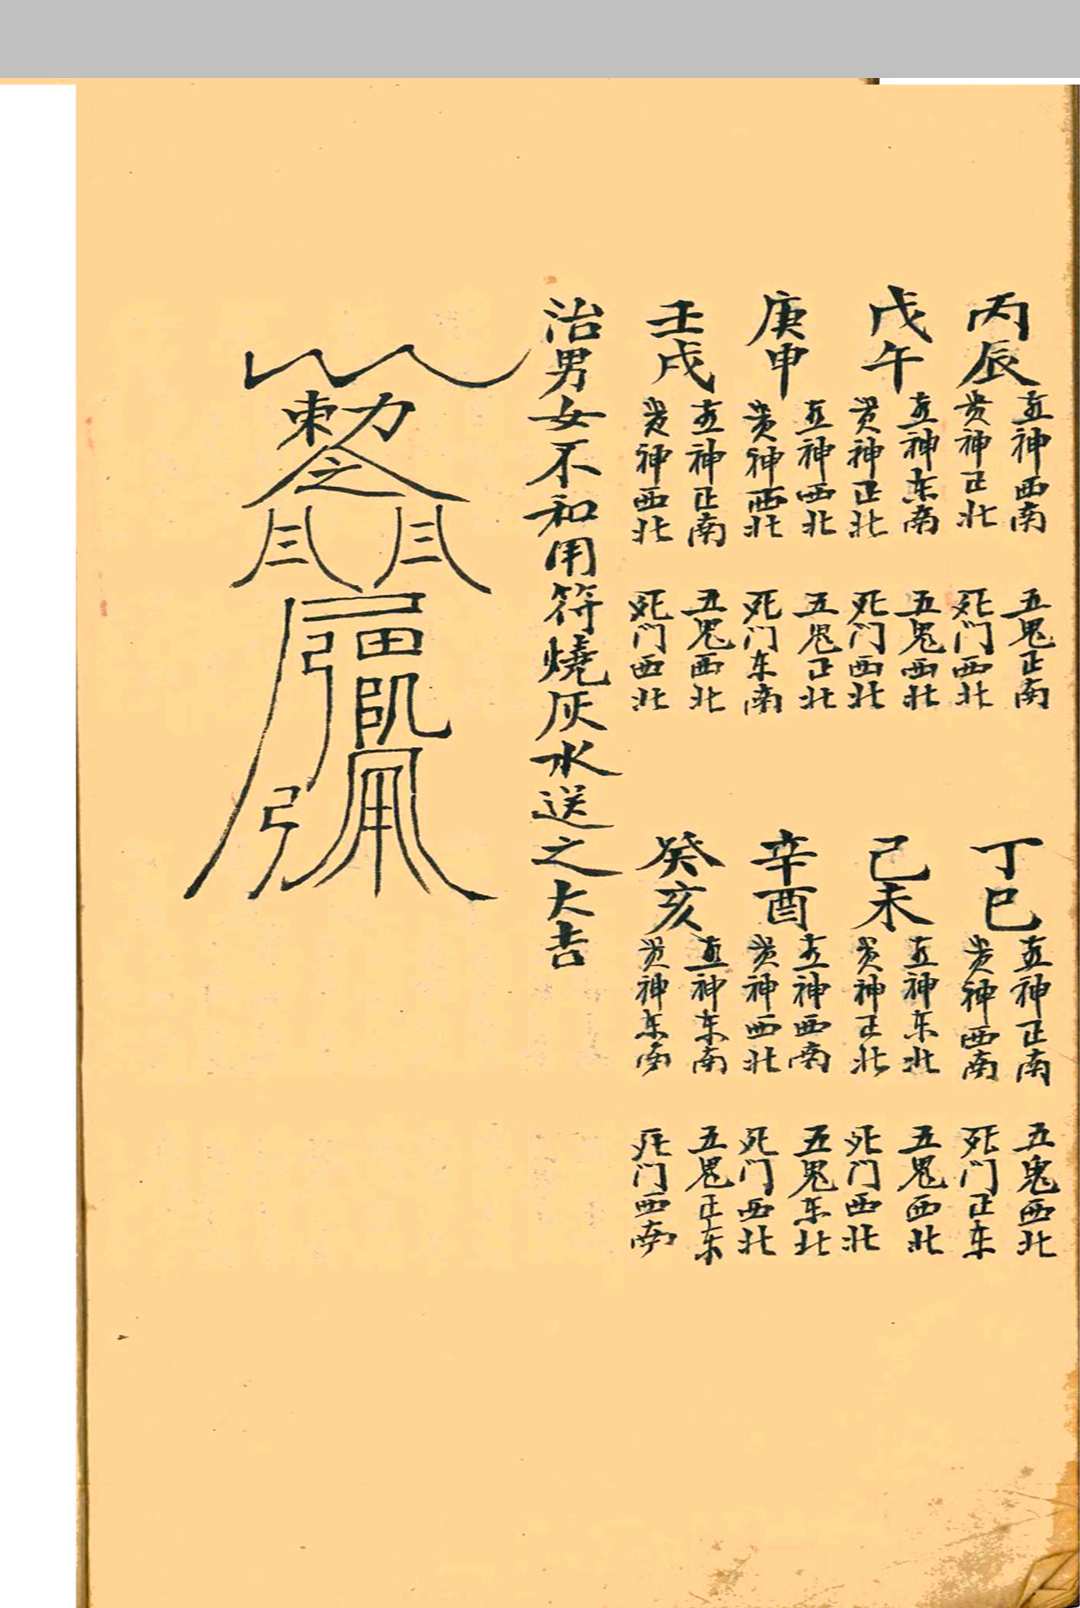 丙辰
喜神西南
贵神正北
五鬼正南
死门西北
丁巳
喜神正南
贵神西南
五鬼西北
死门正东
戊午
喜神东南
贵神正北
五鬼西北
死门西北
己未
喜神东北
贵神正北
五鬼西北
死门西北
庚申
喜神西北
贵神西北
五鬼正北
死门东南
辛酉
喜神西南
贵神西北
五鬼东北
死门西北
壬戌
喜神正南
贵神西北
五鬼西北
死门西北
癸亥
喜神东南
贵神东南
五鬼正东
死门西南
治男女不和用符燒灰水送之大吉